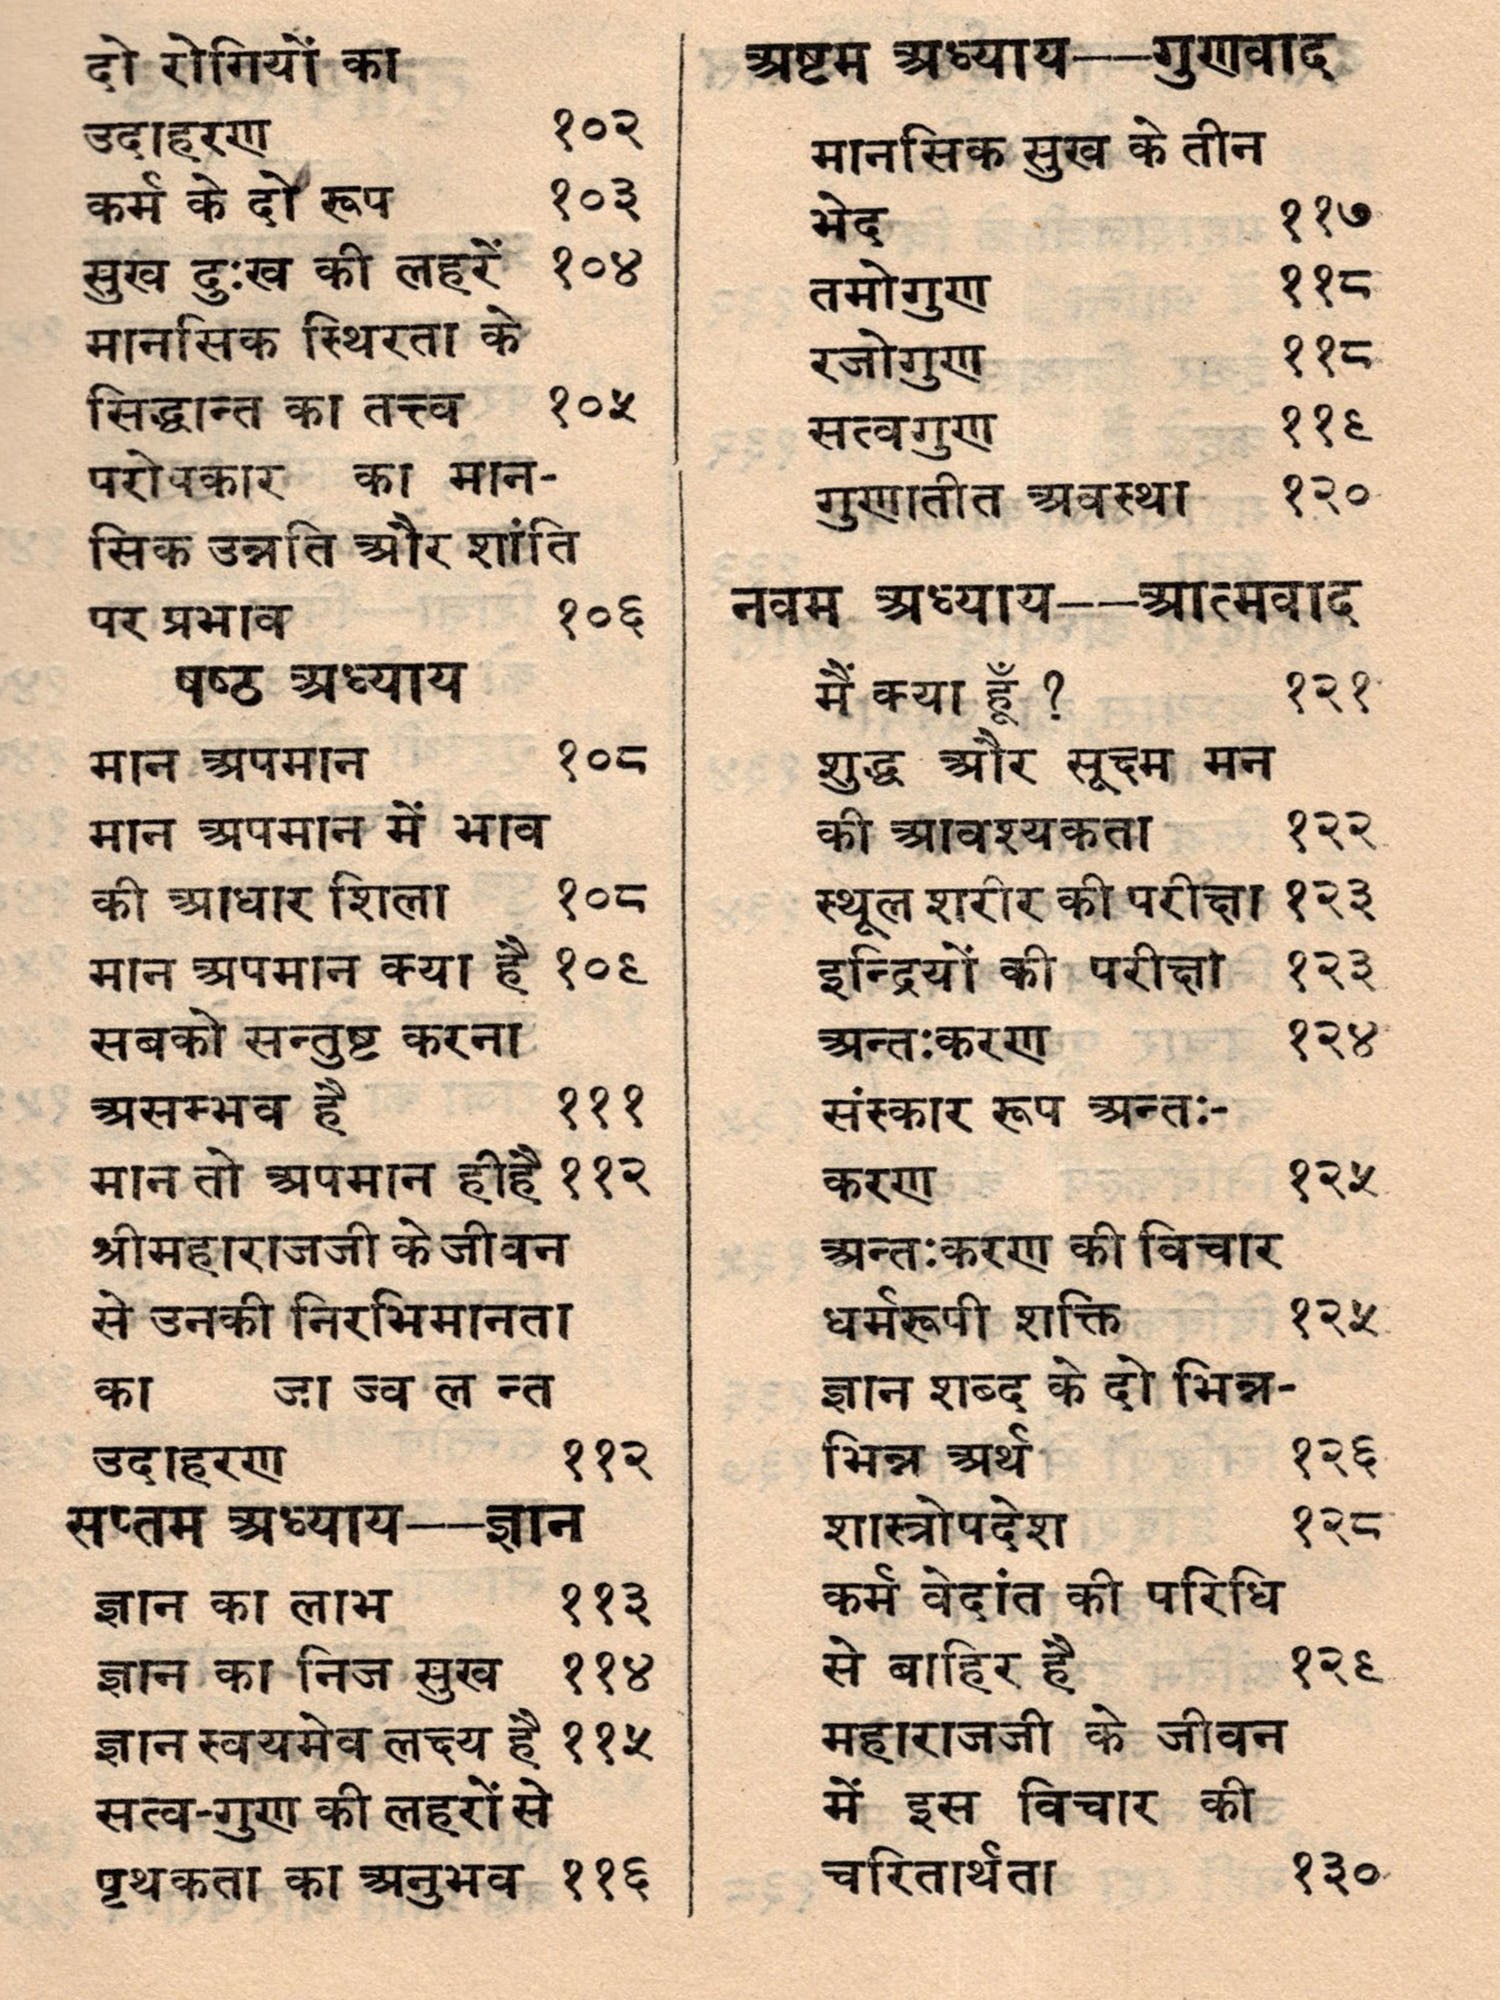 दो रोगियों का
उदाहरण १०२
कर्म के दो रूप १०३
सुख दुःख की लहरें १०४
मानसिक स्थिरता के
सिद्धान्त का तत्त्व १०५
परोपकार का मान-
सिक उन्नति और शांति
पर प्रभाव १०६
षष्ठ अध्याय
मान अपमान १०८
मान अपमान में भाव
की आधार शिला १०८
मान अपमान क्या है १०९
सबको सन्तुष्ट करना
असम्भव है १११
मान तो अपमान हीहै ११२
श्रीमहाराजजी के जीवन
से उनकी निरभिमानता
का जा ज्व ल न्त
उदाहरण ११२
सप्तम अध्याय——ज्ञान
ज्ञान का लाभ ११३
ज्ञान का निज सुख ११४
ज्ञान स्वयमेव लक्ष्य है ११५
सत्व-गुण की लहरों से
पृथकता का अनुभव ११६
अष्टम अध्याय——गुणवाद
मानसिक सुख के तीन
भेद ११७
तमोगुण ११८
रजोगुण ११८
सत्वगुण ११९
गुणातीत अवस्था १२०
नवम अध्याय——आत्मवाद
मैं क्या हूँ ? १२१
शुद्ध और सूक्ष्म मन
की आवश्यकता १२२
स्थूल शरीर की परीक्षा १२३
इन्द्रियों की परीक्षा १२३
अन्तःकरण १२४
संस्कार रूप अन्तः-
करण १२५
अन्तःकरण की विचार
धर्मरूपी शक्ति १२५
ज्ञान शब्द के दो भिन्न-
भिन्न अर्थ १२६
शास्त्रोपदेश १२८
कर्म वेदांत की परिधि
से बाहिर है १२९
महाराजजी के जीवन
में इस विचार की
चरितार्थता १३०